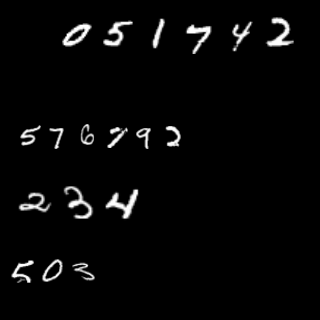 051742
576792
234
503